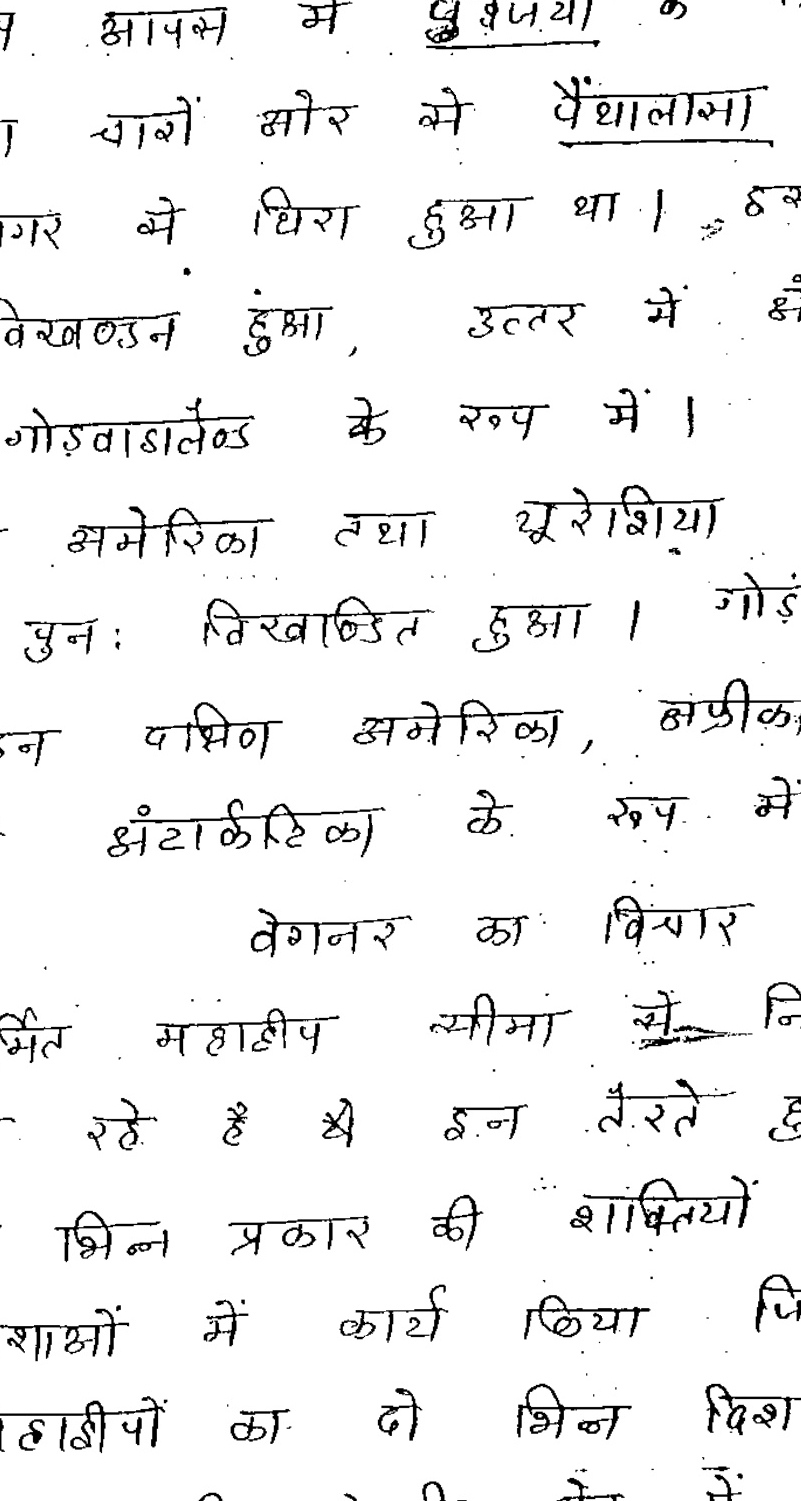 आपस में
चारों ओर से पैंथालासा
गर से घिरा हुआ था ।
विखण्डन हुआ, उत्तर में
गोडवाडालैण्ड के रूप में ।
अमेरिका तथा यूरेशिया
पुनः विखण्डित हुआ । गोडं
न दक्षिण अमेरिका, अफ्रीका
अंटार्कटिका के रूप में
वेगनर का विचार
र्मित महाद्वीप सीमा से नि
रहे है ये इन तैरते हु
भिन्न प्रकार की शक्तियों
शाओं में कार्य किया जि
हाद्वीपों का दो भिन्न दिश